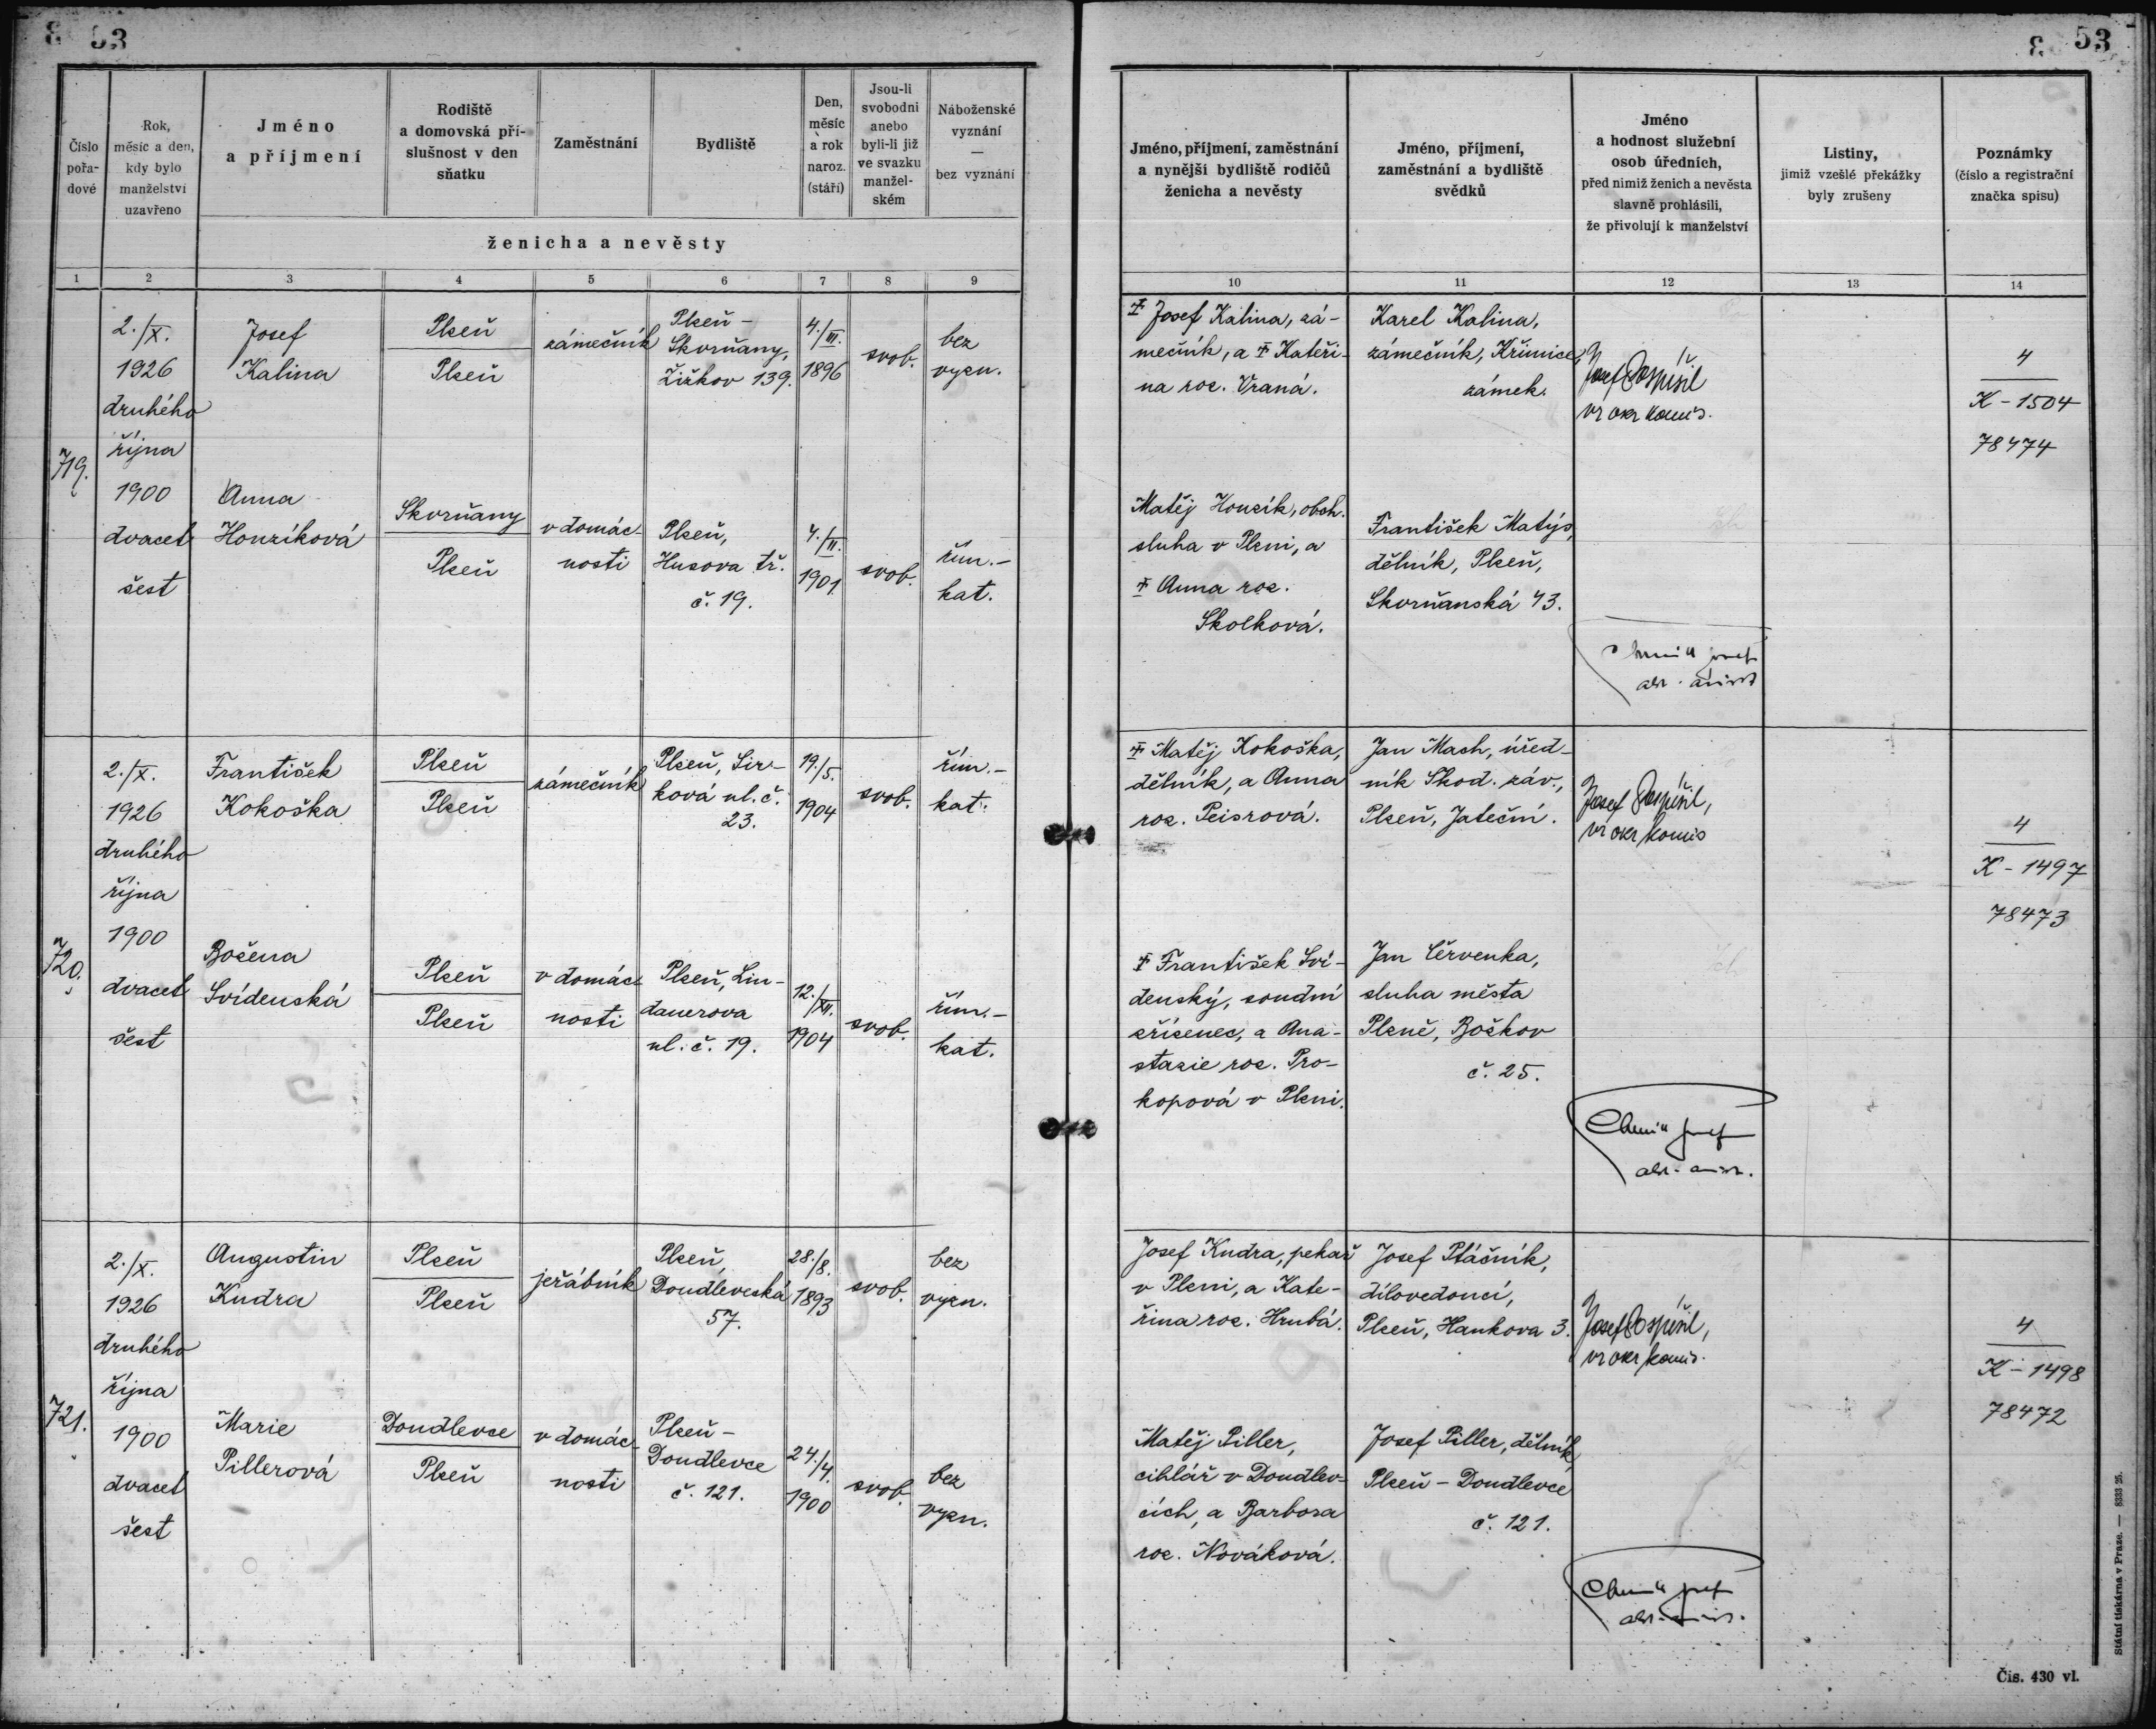 53
53
Číslo pořadové
Rok, měsíc a den, kdy bylo manželství uzavřeno
Jméno a příjmení
Rodiště a domovská příslušnost v den sňatku
Zaměstnání
Bydliště
Den, měsíc a rok naroz. (stáří)
Jsou-li svobodni anebo byli-li již ve svazku manželském
Náboženské vyznání — bez vyznání
ženicha a nevěsty
Jméno, příjmení, zaměstnání a nynější bydliště rodičů ženicha a nevěsty
Jméno, příjmení, zaměstnání a bydliště svědků
Jméno a hodnost služební osob úředních, před nimiž ženich a nevěsta slavně prohlásili, že přivolují k manželství
Listiny, jimiž vzešlé překážky byly zrušeny
Poznámky (číslo a registrační značka spisu)
1 2 3 4 5 6 7 8 9 10 11 12 13 14
719.
2./X.
1926
druhého
října
1900
dvacet
šest
Josef
Kalina
Plzeň
Plzeň
zámečník
Plzeň-
Skvrňany,
Žižkov 139.
4./III.
1896
svob.
bez
vyzn.
Josef Kalina, zá-
mečník, a Kateři-
na roz. Vraná.
Karel Kalina,
zámečník, Křimice,
zámek.
Josef Pospíšil
vr okr komis.
4
K-1504
78474
Anna
Honzíková
Skvrňany
Plzeň
v domác-
nosti
Plzeň,
Husova tř.
č. 19.
4./II.
1901
svob.
řím.-
kat.
Matěj Honzík, obch.
sluha v Plzni, a
Anna roz.
Skolková.
František Matýs,
dělník, Plzeň,
Skvrňanská 43.
720.
2./X.
1926
druhého
října
1900
dvacet
šest
František
Kokoška
Plzeň
Plzeň
zámečník
Plzeň, Sir-
ková ul. č.
23.
19./5.
1904
svob.
řím.-
kat.
Matěj Kokoška,
dělník, a Anna
roz. Peisrová.
Jan Mach, úřed-
ník Škod. záv.,
Plzeň, Jateční.
Josef Pospíšil,
vr okr komis
4
K-1497
78473
Božena
Svídenská
Plzeň
Plzeň
v domác-
nosti
Plzeň, Lin-
dauerova
ul. č. 19.
12./XII.
1904
svob.
řím.-
kat.
František Sví-
denský, soudní
zřízenec, a Ana-
stazie roz. Pro-
kopová v Plzni.
Jan Červenka,
sluha města
Plzně, Božkov
č. 25.
721.
2./X.
1926
druhého
října
1900
dvacet
šest
Augustin
Kudra
Plzeň
Plzeň
jeřábník
Plzeň,
Doudlevecká
57.
28./8.
1893
svob.
bez
vyzn.
Josef Kudra, pekař
v Plzni, a Kate-
řina roz. Hrubá.
Josef Ptáčník,
dílovedoucí,
Plzeň, Hankova 3.
Josef Pospíšil,
vr okr komis.
4
K-1498
78472
Marie
Pillerová
Doudlevce
Plzeň
v domác-
nosti
Plzeň-
Doudlevce
č. 121.
24./4.
1900
svob.
bez
vyzn.
Matěj Piller,
cihlář v Doudlev-
cích, a Barbora
roz. Nováková.
Josef Piller, dělník,
Plzeň-Doudlevce
č. 121.
Státní tiskárna v Praze. — 8333 25.
Čís. 430 vl.